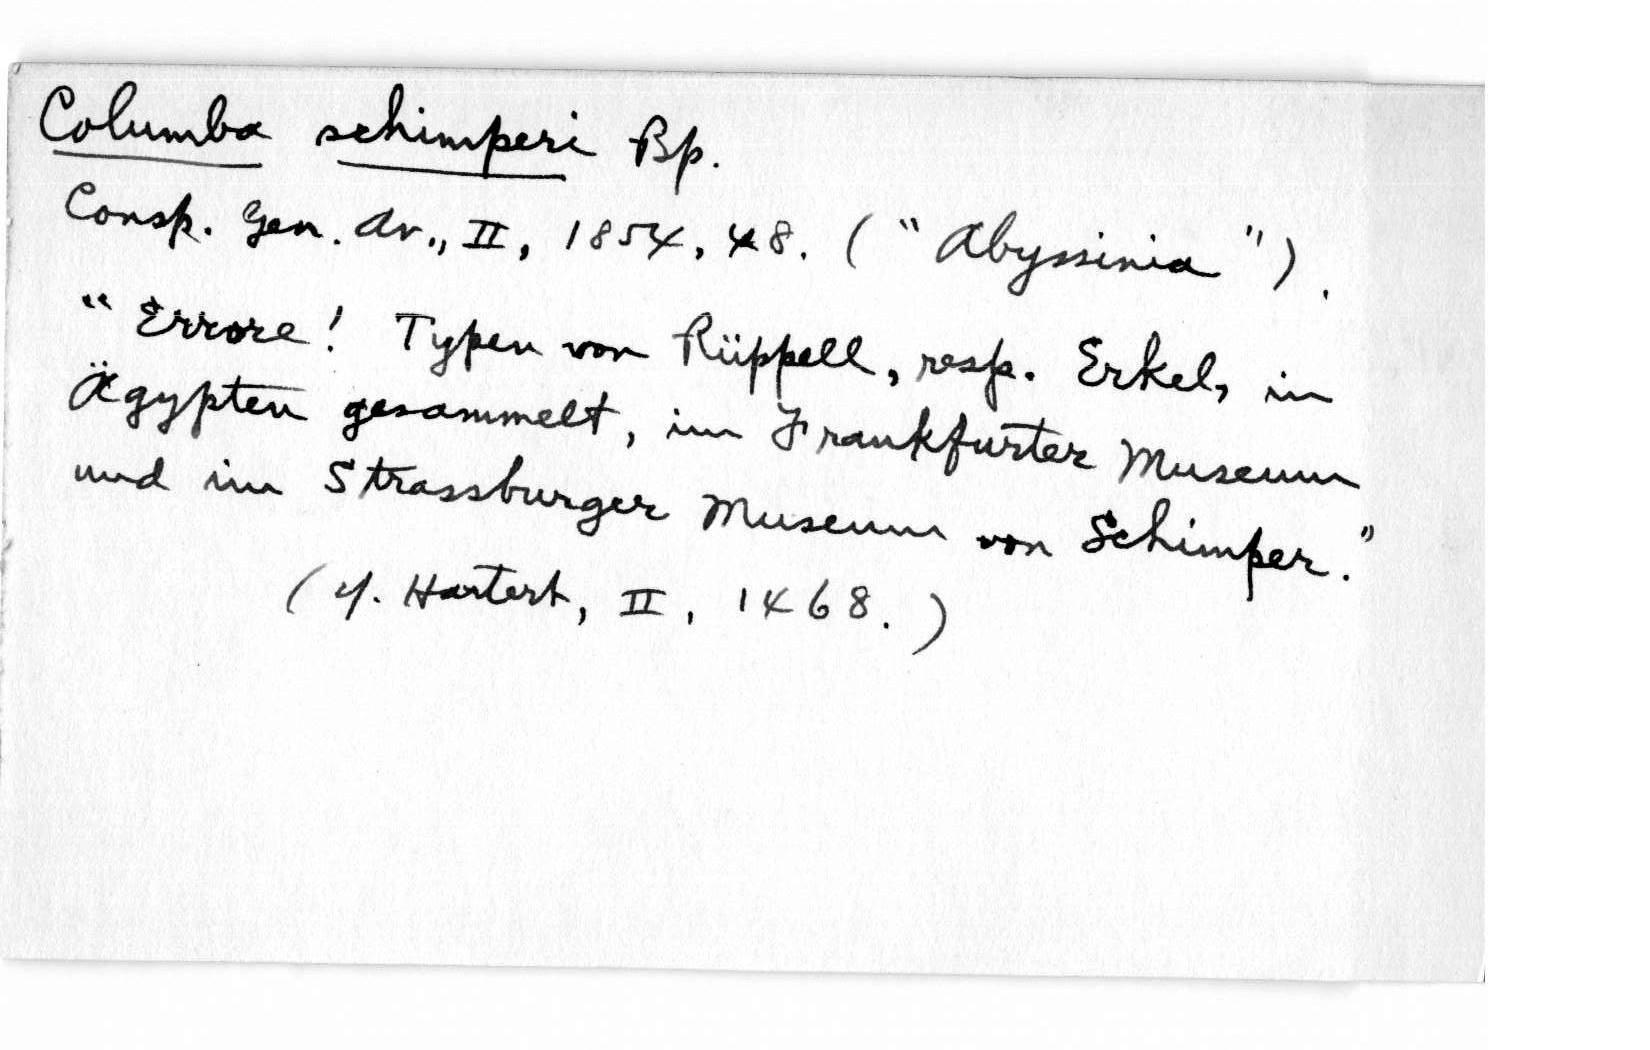 Columba schimperi Bp.
Consp. Gen. Av., II, 1854, 48. ("Abyssinia").
"Errore! Typen von Rüppell, resp. Erkel, in
Ägypten gesammelt, im Frankfurter Museum
und im Strassburger Museum von Schimper."
(cf. Hartert, II, 1468.)